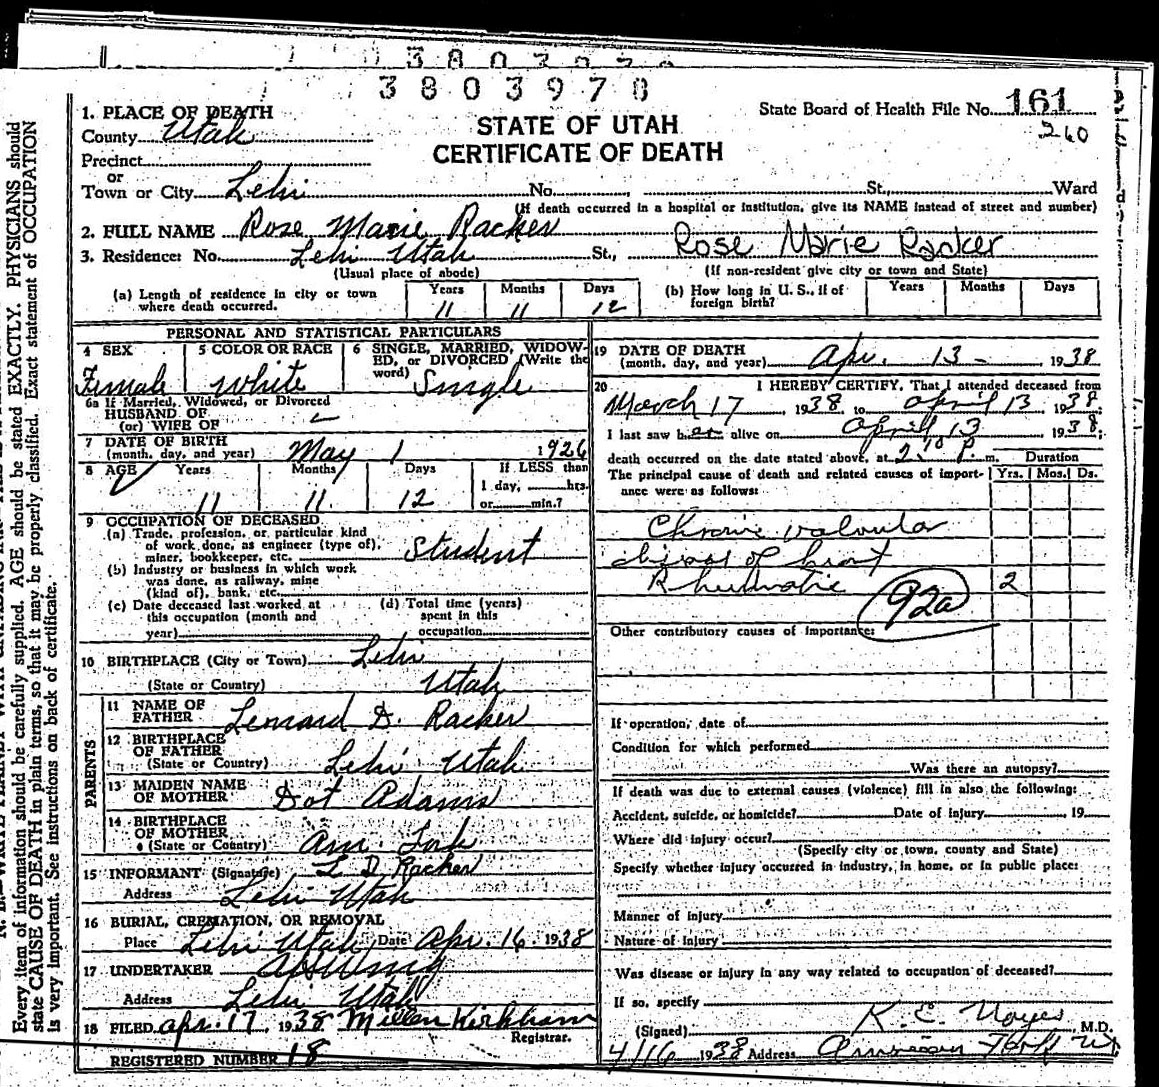 3 8 0 3 9 7 8
3 8 0 3 9 7 8
State Board of Health File No. 161
260
STATE OF UTAH
CERTIFICATE OF DEATH
1. PLACE OF DEATH
County Utah
Precinct
or
Town or City Lehi No. St., Ward
(If death occurred in a hospital or institution, give its NAME instead of street and number)
2. FULL NAME Rose Marie Racker
Rose Marie Racker
3. Residence: No. Lehi Utah St.,
(Usual place of abode) (If non-resident give city or town and State)
(a) Length of residence in city or town where death occurred. Years 11 Months 11 Days 12
(b) How long in U. S., if of foreign birth? Years Months Days
PERSONAL AND STATISTICAL PARTICULARS
4 SEX Female
5 COLOR OR RACE White
6 SINGLE, MARRIED, WIDOWED, or DIVORCED (Write the word) Single
6a If Married, Widowed, or Divorced
HUSBAND OF
(or) WIFE OF
7 DATE OF BIRTH
(month, day, and year) May 1 1926
8 AGE Years 11 Months 11 Days 12 If LESS than 1 day, hrs. or min.?
9 OCCUPATION OF DECEASED
(a) Trade, profession, or particular kind of work done, as engineer (type of), miner, bookkeeper, etc. Student
(b) Industry or business in which work was done, as railway, mine (kind of), bank, etc.
(c) Date deceased last worked at this occupation (month and year)
(d) Total time (years) spent in this occupation
10 BIRTHPLACE (City or Town) Lehi
(State or Country) Utah
PARENTS
11 NAME OF FATHER Lenoard D. Racker
12 BIRTHPLACE OF FATHER
(State or Country) Lehi Utah
13 MAIDEN NAME OF MOTHER Dot Adams
14 BIRTHPLACE OF MOTHER
(State or Country) Am. Fork
15 INFORMANT (Signature) L D Racker
Address Lehi Utah
16 BURIAL, CREMATION, OR REMOVAL
Place Lehi Utah Date Apr. 16 1938
17 UNDERTAKER
Address Lehi Utah
18 FILED Apr. 17, 1938 Millen Kirkham
Registrar.
REGISTERED NUMBER 18
19 DATE OF DEATH
(month, day, and year) Apr. 13 - 1938
20 I HEREBY CERTIFY, That I attended deceased from
March 17 1938 to April 13 1938
I last saw her alive on April 13 1938;
death occurred on the date stated above, at 2 10 P. m. Duration
The principal cause of death and related causes of importance were as follows: Yrs. Mos. Ds.
Chronic valvular
disease of heart
Rheumatic 2
92a
Other contributory causes of importance:
If operation, date of
Condition for which performed
Was there an autopsy?
If death was due to external causes (violence) fill in also the following:
Accident, suicide, or homicide? Date of injury 19
Where did injury occur?
(Specify city or town, county and State)
Specify whether injury occurred in industry, in home, or in public place:
Manner of injury
Nature of injury
Was disease or injury in any way related to occupation of deceased?
If so, specify
(Signed) K. E. Noyes M.D.
4/16 1938 Address American Fork Ut
Every item of information should be carefully supplied. AGE should be stated EXACTLY. PHYSICIANS should
state CAUSE OF DEATH in plain terms, so that it may be properly classified. Exact statement of OCCUPATION
is very important. See instructions on back of certificate.